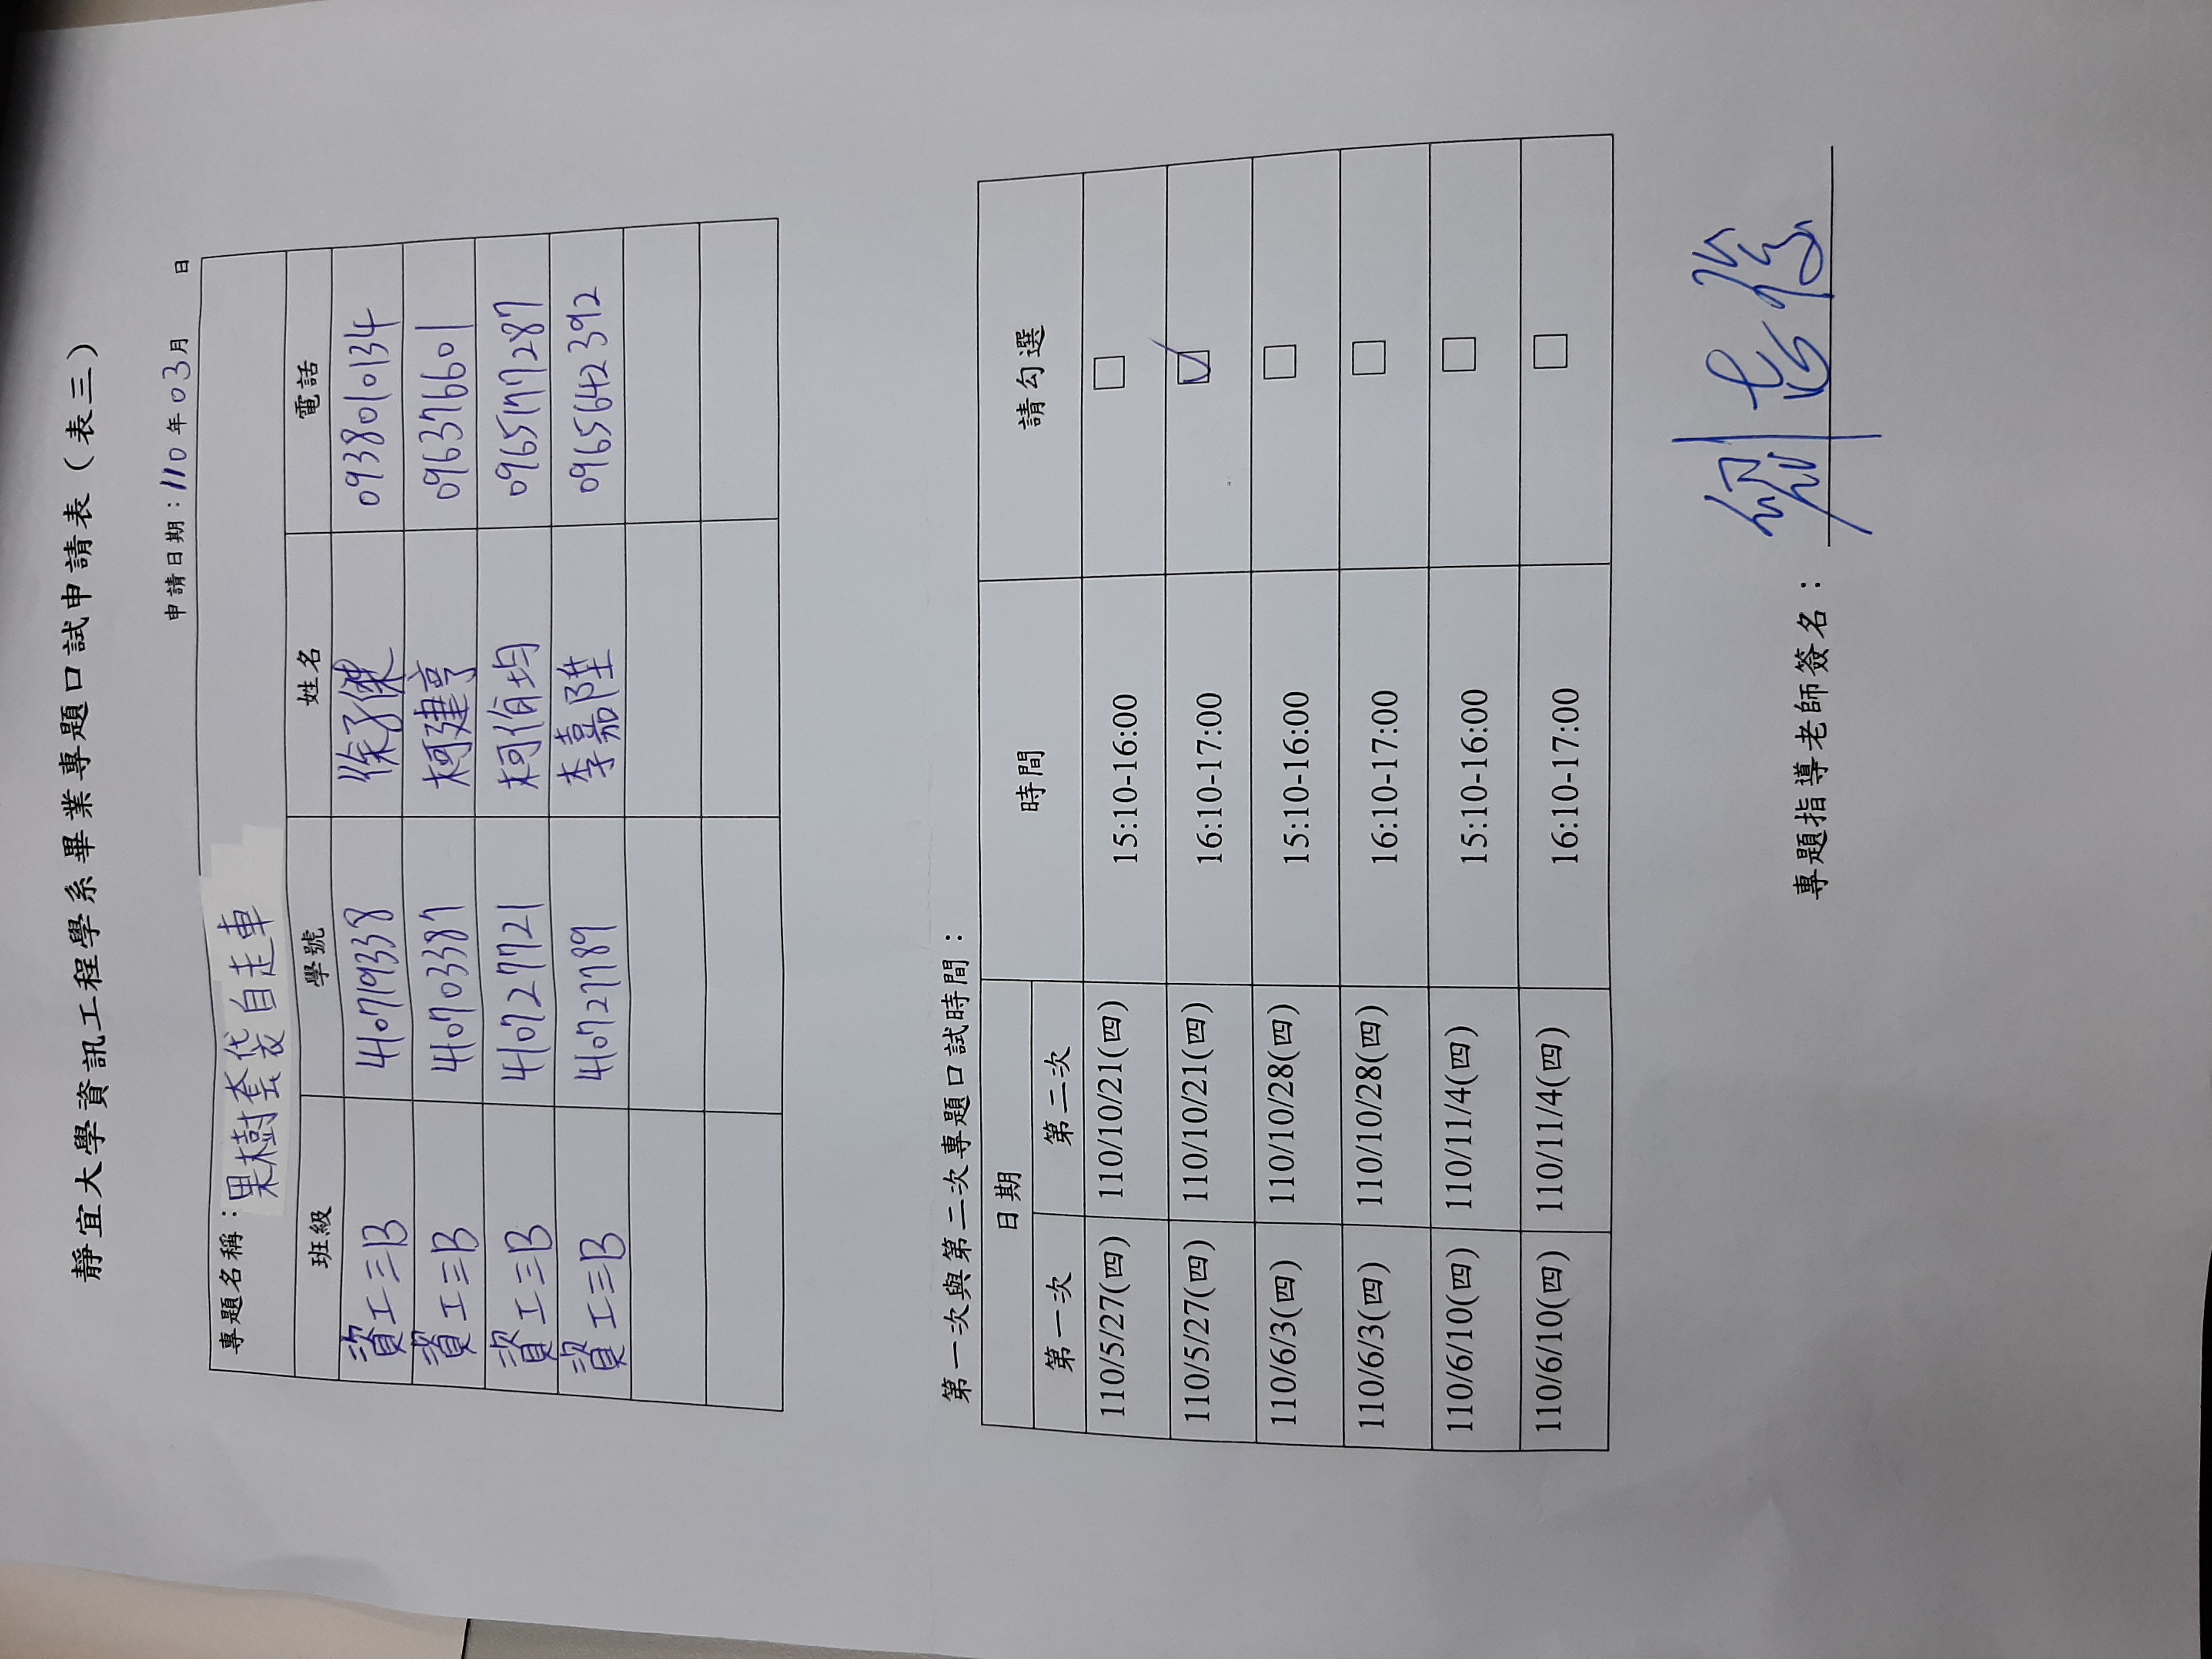 靜宜大學資訊工程學系畢業專題口試申請表（表三）
申請日期：110 年 03 月 日
專題名稱：果樹套袋自走車
班級 學號 姓名 電話
資工三B 410719338 徐子傑 0938010134
資工三B 410703387 柯建亨 096376601
資工三B 410727721 柯伯均 0965177287
資工三B 410727789 李嘉陞 0965642392
第一次與第二次專題口試時間：
日期 時間 請勾選
第一次 第二次
110/5/27(四) 110/10/21(四) 15:10-16:00 □
110/5/27(四) 110/10/21(四) 16:10-17:00 ☑
110/6/3(四) 110/10/28(四) 15:10-16:00 □
110/6/3(四) 110/10/28(四) 16:10-17:00 □
110/6/10(四) 110/11/4(四) 15:10-16:00 □
110/6/10(四) 110/11/4(四) 16:10-17:00 □
專題指導老師簽名：劉志俊